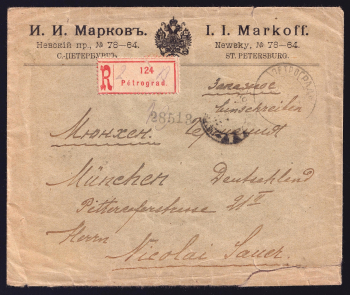 И. И. Марковъ.
Невскій пр., № 78—64.
С.-ПЕТЕРБУРГЪ.
I. I. Markoff.
Newsky, № 78—64.
ST. PETERSBURG.
R
124
Petrograd.
Заказное
Einschreiben
28518
Мюнхен.
München Deutschland
Herrn
Nicolai Sauer.